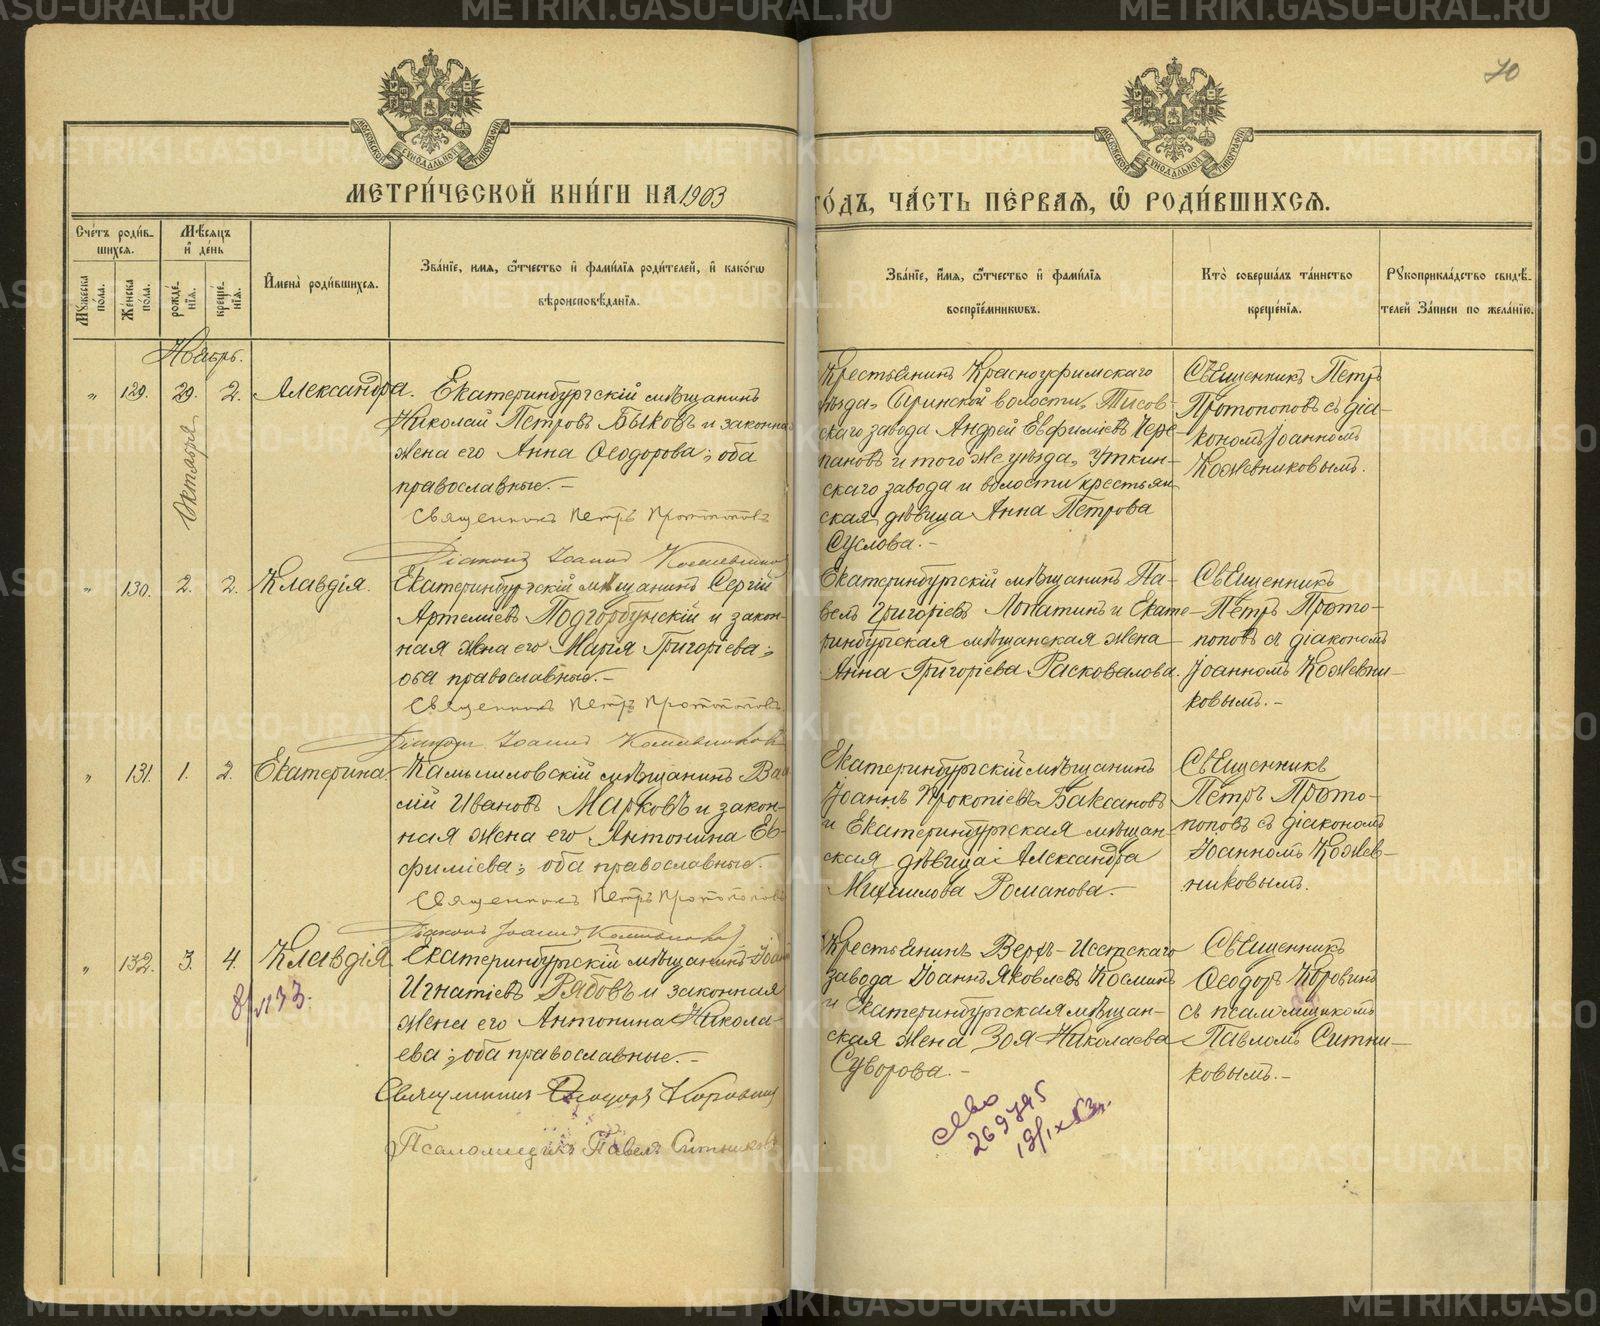 70
МОСКОВСКОЙ СѴНОДАЛЬНОЙ ТИПОГРАФІИ
МОСКОВСКОЙ СѴНОДАЛЬНОЙ ТИПОГРАФІИ
МЕТРИ́ЧЕСКОЙ КНИ́ГИ НА 1903
ГО́ДЪ, ЧА́СТЬ ПЕ́РВАЯ, Ѽ РОДИ́ВШИХСЯ.
Сче́тъ роди́в-
шихся.
Мужеска по́ла.
Же́нска по́ла.
Мѣ́сяцъ
и де́нь
рожде́-
нїя.
креще́-
нїя.
И҆мена̀ роди́вшихся.
Зва́нїе, имя, ѻ҆́тчество и҆ фами́лїя роди́телей, и҆ како́гѡ
вѣроисповѣ́данїя.
Зва́нїе, и҆́мя, ѻ҆́тчество и҆ фами́лїя
воспрїе́мникѡвъ.
Кто̀ соверша́лъ та́инство
креще́нїя.
Рꙋкоприкла́дство свидѣ́-
телей За́писи по жела́нїю.
Ноябрь.
Октября
„ 129. 29. 2. Александра. Екатеринбургскій мѣщанинъ
Николай Петровъ Быковъ и законная
жена его Анна Ѳеодорова; оба
православные.-
Священникъ Петръ Протопоповъ
Діаконъ Іоаннъ Кожевников
Крестьянинъ Красноуфимскаго
уѣзда, Сыринской волости, Тисов-
скаго завода Андрей Евфиміевъ Чере-
пановъ и того же уѣзда, Уткин-
скаго завода и волости крестьян
ская дѣвица Анна Петрова
Суслова.-
Священникъ Петръ
Протопоповъ съ діа-
кономъ Іоанномъ
Кожевниковымъ.
„ 130. 2. 2. Клавдія. Екатеринбургскій мѣщанинъ Сергій
Артеміевъ Подгорбунскій и закон-
ная жена его Марія Григоріева;
оба православные.-
Священникъ Петръ Протопоповъ
Діаконъ Іоаннъ Кожевников
Екатеринбургскій мѣщанинъ Па-
велъ Григоріевъ Лопатинъ и Екате-
ринбургская мѣщанская жена
Анна Григоріева Расковалова.
Священникъ
Петръ Прото-
поповъ съ діакономъ
Іоанномъ Кожевни-
ковымъ.-
„ 131. 1. 2. Екатерина. Камышловскій мѣщанинъ Васи
лій Ивановъ Марковъ и закон-
ная жена его Антонина Ев-
фиміева; оба православные.
Священникъ Петръ Протопоповъ
Діаконъ Іоаннъ Кожевников
Екатеринбургскій мѣщанинъ
Іоаннъ Прокопіевъ Баксановъ
и Екатеринбургская мѣщан-
ская дѣвица Александра
Михаилова Романова.-
Священникъ
Петръ Прото-
поповъ съ діакономъ
Іоанномъ Кожев-
никовымъ.
„ 132. 3. 4. Клавдія. Екатеринбургскій мѣщанинъ Іоаннъ
Игнатіевъ Рябовъ и законная
жена его Антонина Никола-
ева; оба православные.-
Священникъ Ѳеодоръ Коровин
Псаломщикъ Павелъ Ситниковъ
Крестьянинъ Верхъ-Исетскаго
завода Іоаннъ Яковлевъ Косминъ
и Екатеринбургская мѣщан-
ская жена Зоя Николаева
Суворова.-
Священникъ
Ѳеодоръ Коровинъ
съ псаломщикомъ
Павломъ Ситни-
ковымъ.-
269795
METRIKI.GASO-URAL.RU